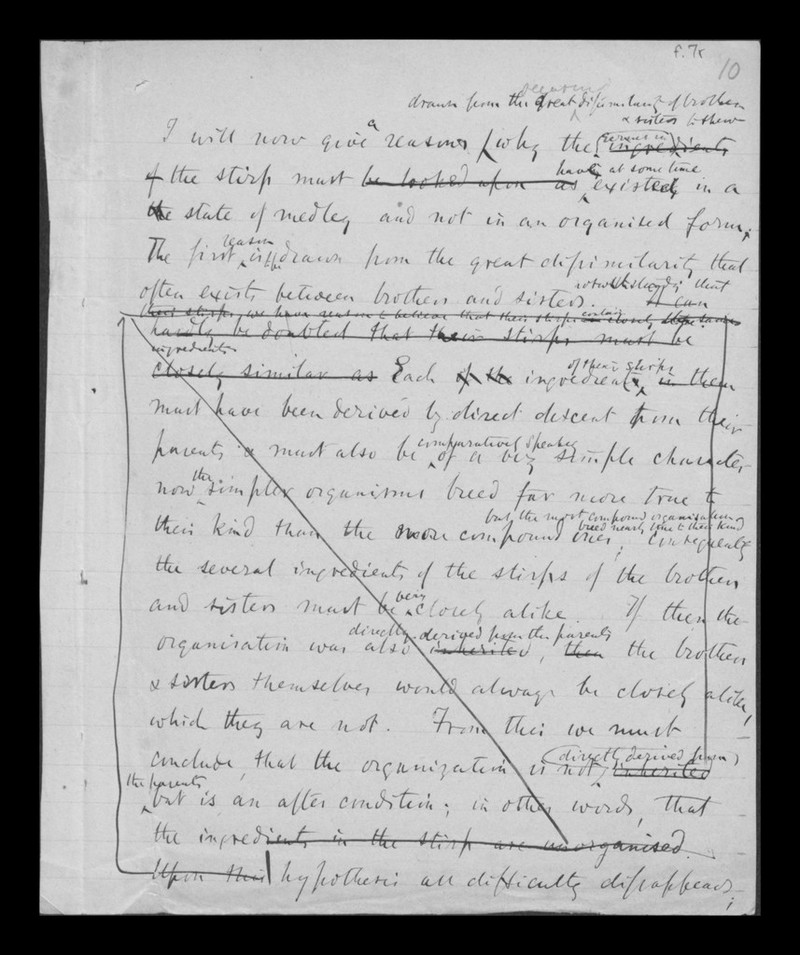 f. 7r
10
drawn from the great dissimilarity of brothers
& sisters to shew
I will now give a reason, why the ingredients
of the stirp must be looked upon as have at some time existed in a
the state of medley and not in an organised form.
reason
The first is drawn from the great dissimilarity that
notwithstanding that
often exists between brothers and sisters. It can
their stirps, we have reason to believe that their stirps contain closely the same
hardly be doubted that their stirps must be
ingredients
of their stirps
closely similar as Each of the ingredients in them
must have been derived by direct descent from their
comparatively speaking
parents & must also be of a very simple character
the
now simpler organisms breed far more true to
but the most compound organisations
breed nearly true to their kind
their kind than the more compound ones; consequently
the several ingredients of the stirps of the brothers
very
and sisters must be closely alike. If then the
directly derived from the parents
organisation was also inherited, then the brothers
& sisters themselves would always be closely alike,
which they are not. From this we must
directly derived from
conclude, that the organization is not inherited
the parents
but is an after condition; in other words, that
the ingredients in the stirp are unorganised.
Upon this hypothesis all difficulty disappears;